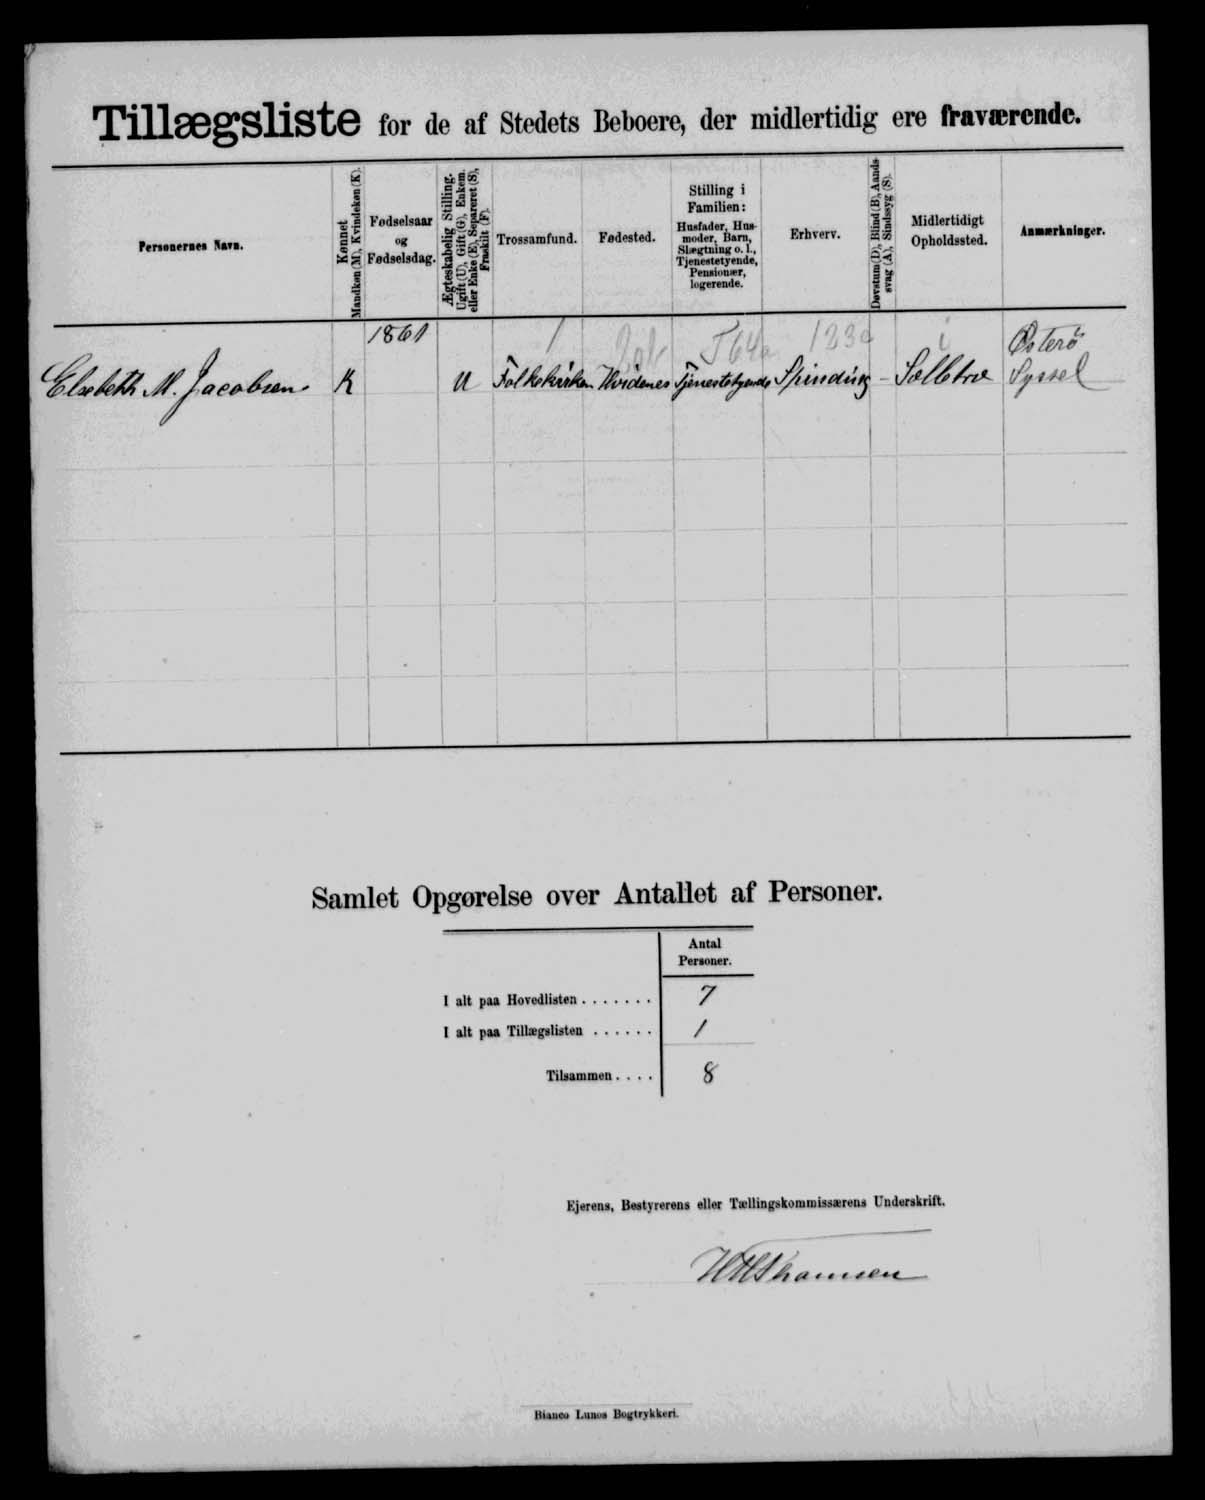 Tillægsliste for de af Stedets Beboere, der midlertidig ere fraværende.
Personernes Navn.
Kønnet
Mandkøn (M), Kvindekøn (K).
Fødselsaar
og
Fødselsdag.
Ægteskabelig Stilling.
Ugift (U), Gift (G), Enkem.
eller Enke (E), Separeret (S),
Fraskilt (F).
Trossamfund.
Fødested.
Stilling i
Familien:
Husfader, Hus-
moder, Barn,
Slægtning o. l.,
Tjenestetyende,
Pensionær,
logerende.
Erhverv.
Døvstum (D), Blind (B), Aands-
svag (A), Sindssyg (S).
Midlertidigt
Opholdssted.
Anmærkninger.
1861
Østerö
Elsebeth M. Jacobsen. K U Folkekirken Hvidenes Tjenestetyende Spinding - Selletræ Syssel
Samlet Opgørelse over Antallet af Personer.
Antal
Personer.
I alt paa Hovedlisten . . . . . . . 7
I alt paa Tillægslisten . . . . . . 1
Tilsammen . . . . 8
Ejerens, Bestyrerens eller Tællingskommissærens Underskrift.
Thomsen
Bianco Lunos Bogtrykkeri.